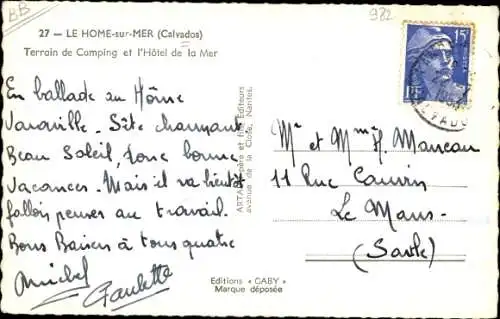 BB
982
27 — LE HOME-sur-MER (Calvados)
Terrain de Camping et l'Hôtel de la Mer
En ballade au Hôme
Varaville. Site charmant
Beau Soleil, donc bonne
Vacances. Mais il va bientôt
falloir penser au travail.
Bons Baisers à tous quatre
Michel
Paulette
ARTAUD père et fils Editeurs
avenue de la Close, Nantes.
Editions "GABY"
Marque déposée
15F
RF
Mr et Mme H. Manceau
11 Rue Cauvin
Le Mans.
(Sarthe)